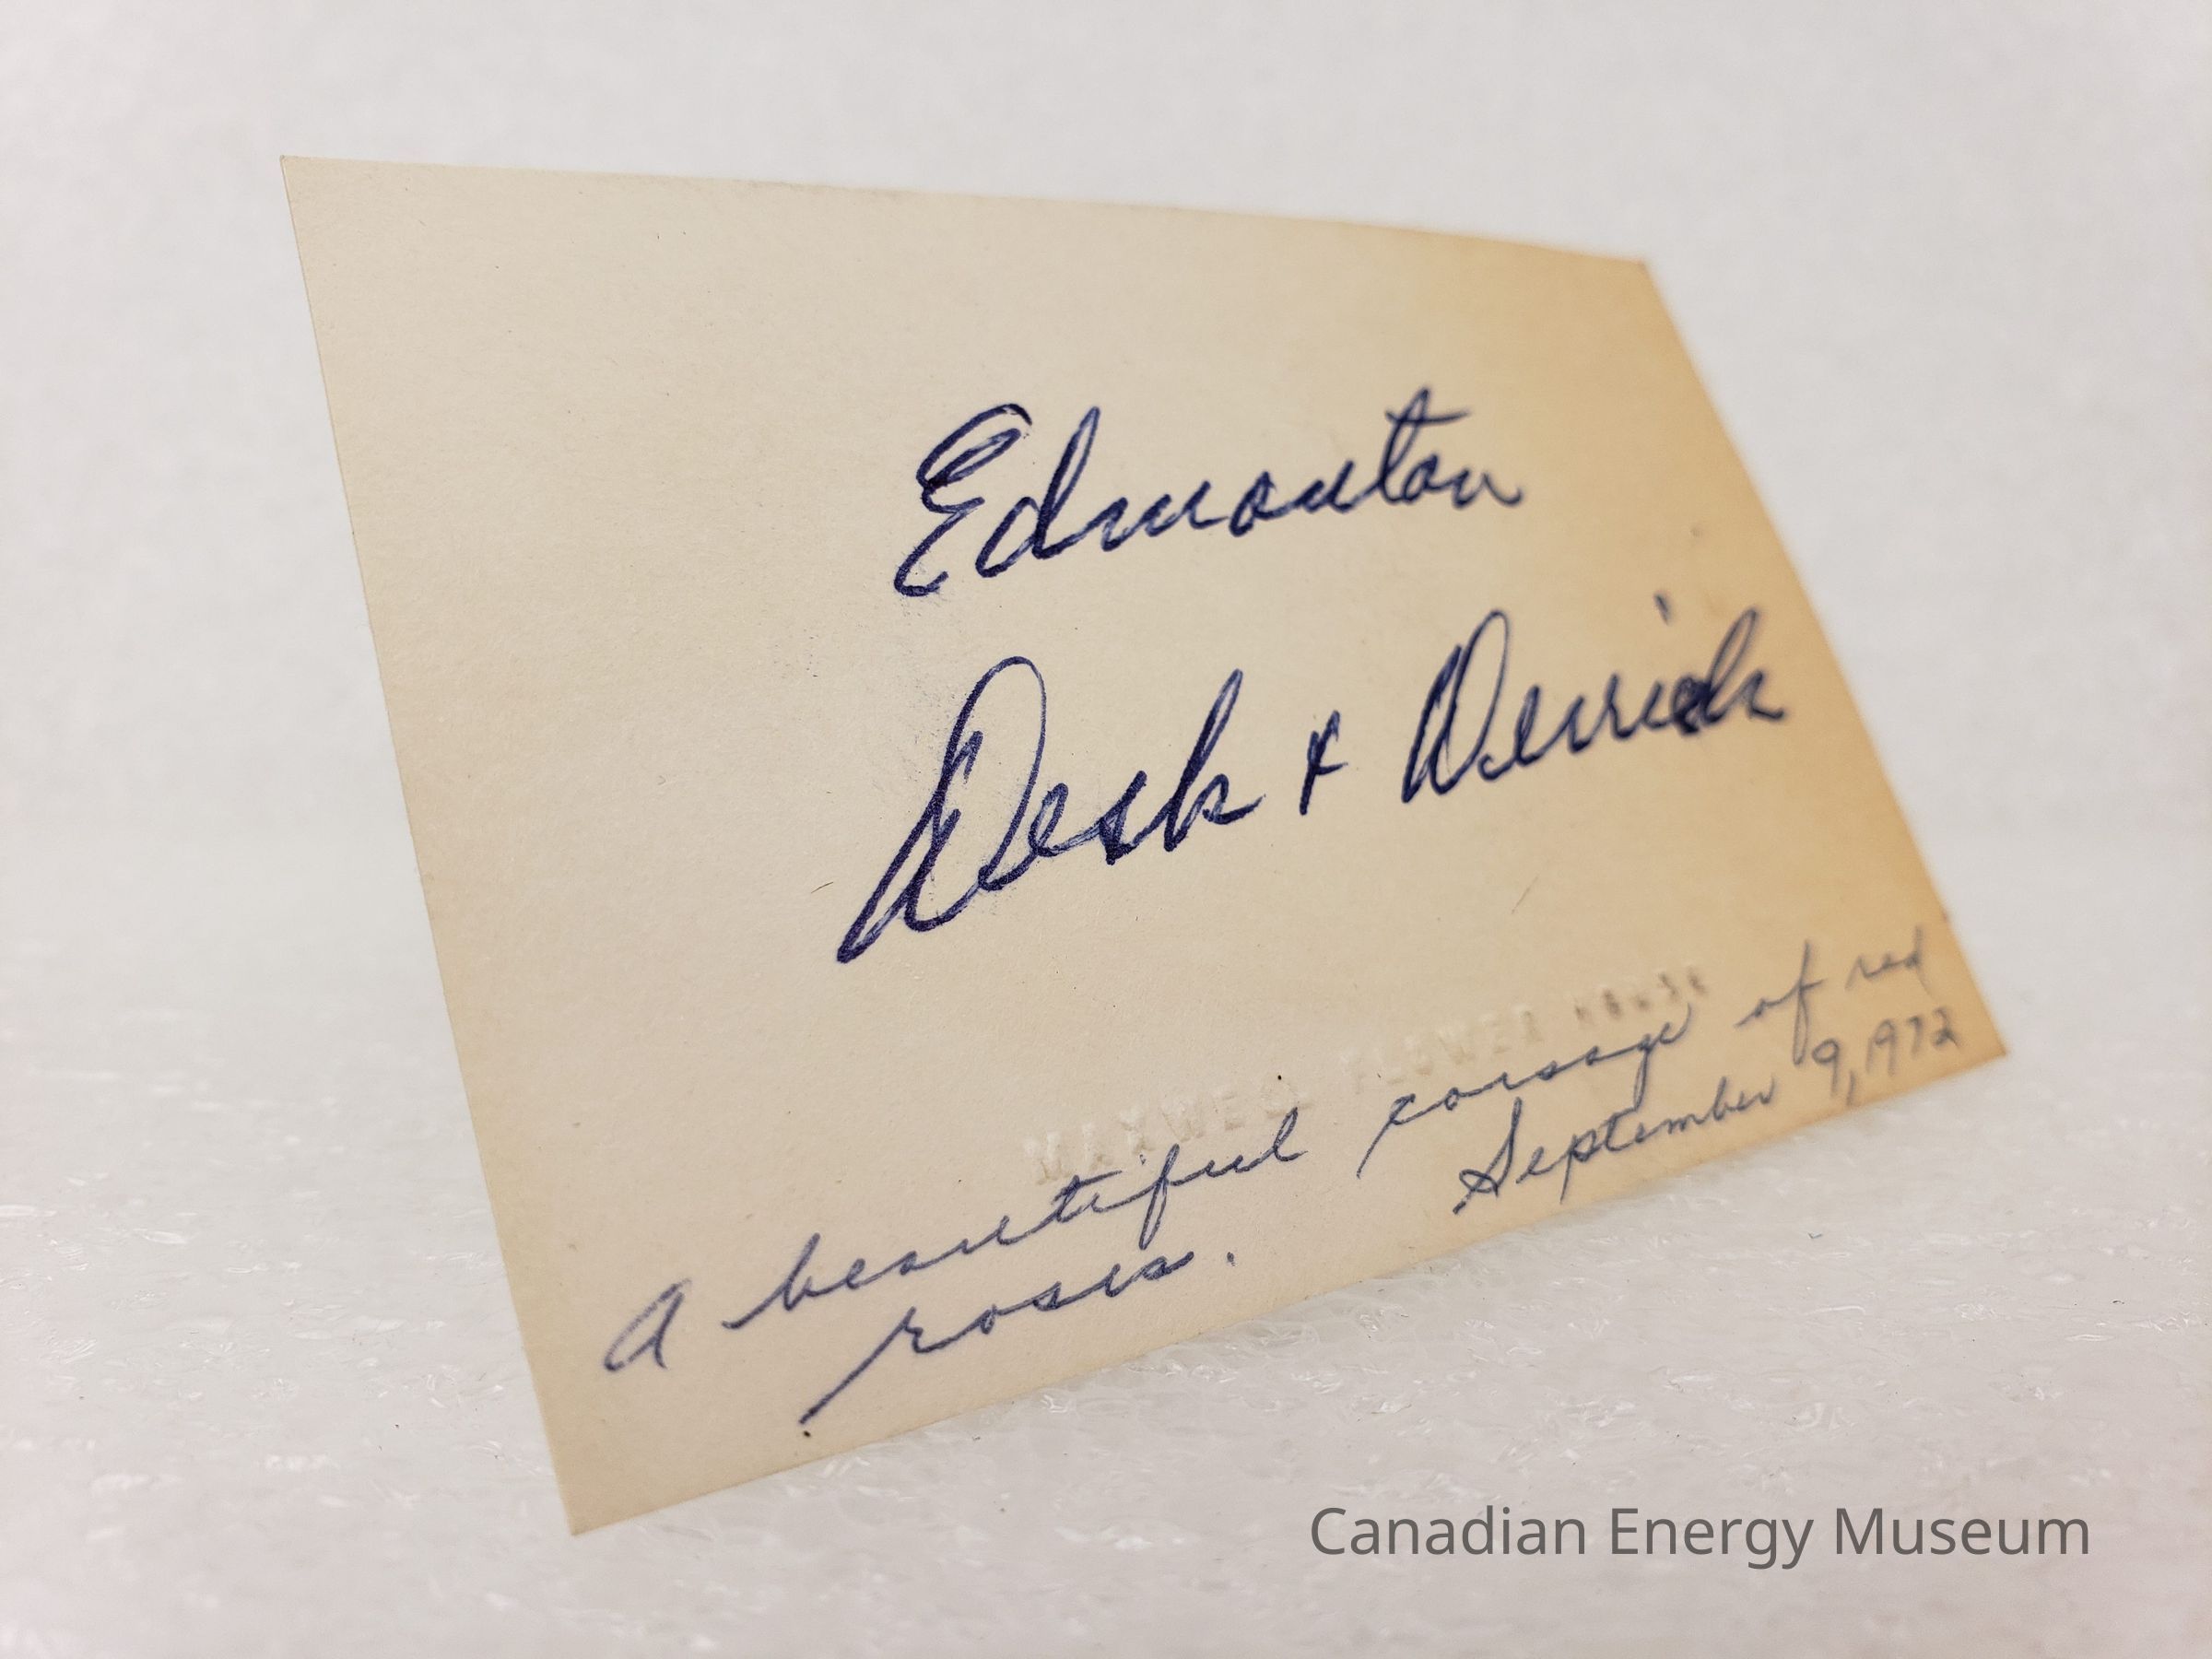 Edmonton
Desk & Derrick
MAXWELL FLOWER HOUSE
A beautiful corsage of red
roses.
September 9, 1972
Canadian Energy Museum